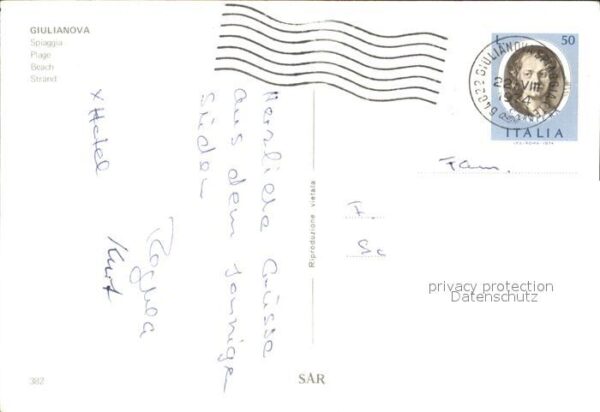 GIULIANOVA
Spiaggia
Plage
Beach
Strand
x Hotel
Herzliche Grüsse
aus dem sonnigen
Süden
Kurt
Riproduzione vietata
L. 50
ITALIA
I.P.S.-ROMA-1974
64022 GIULIANOVA SPIAGGIA
Fam.
F.
Sc
privacy protection
Datenschutz
382
SAR